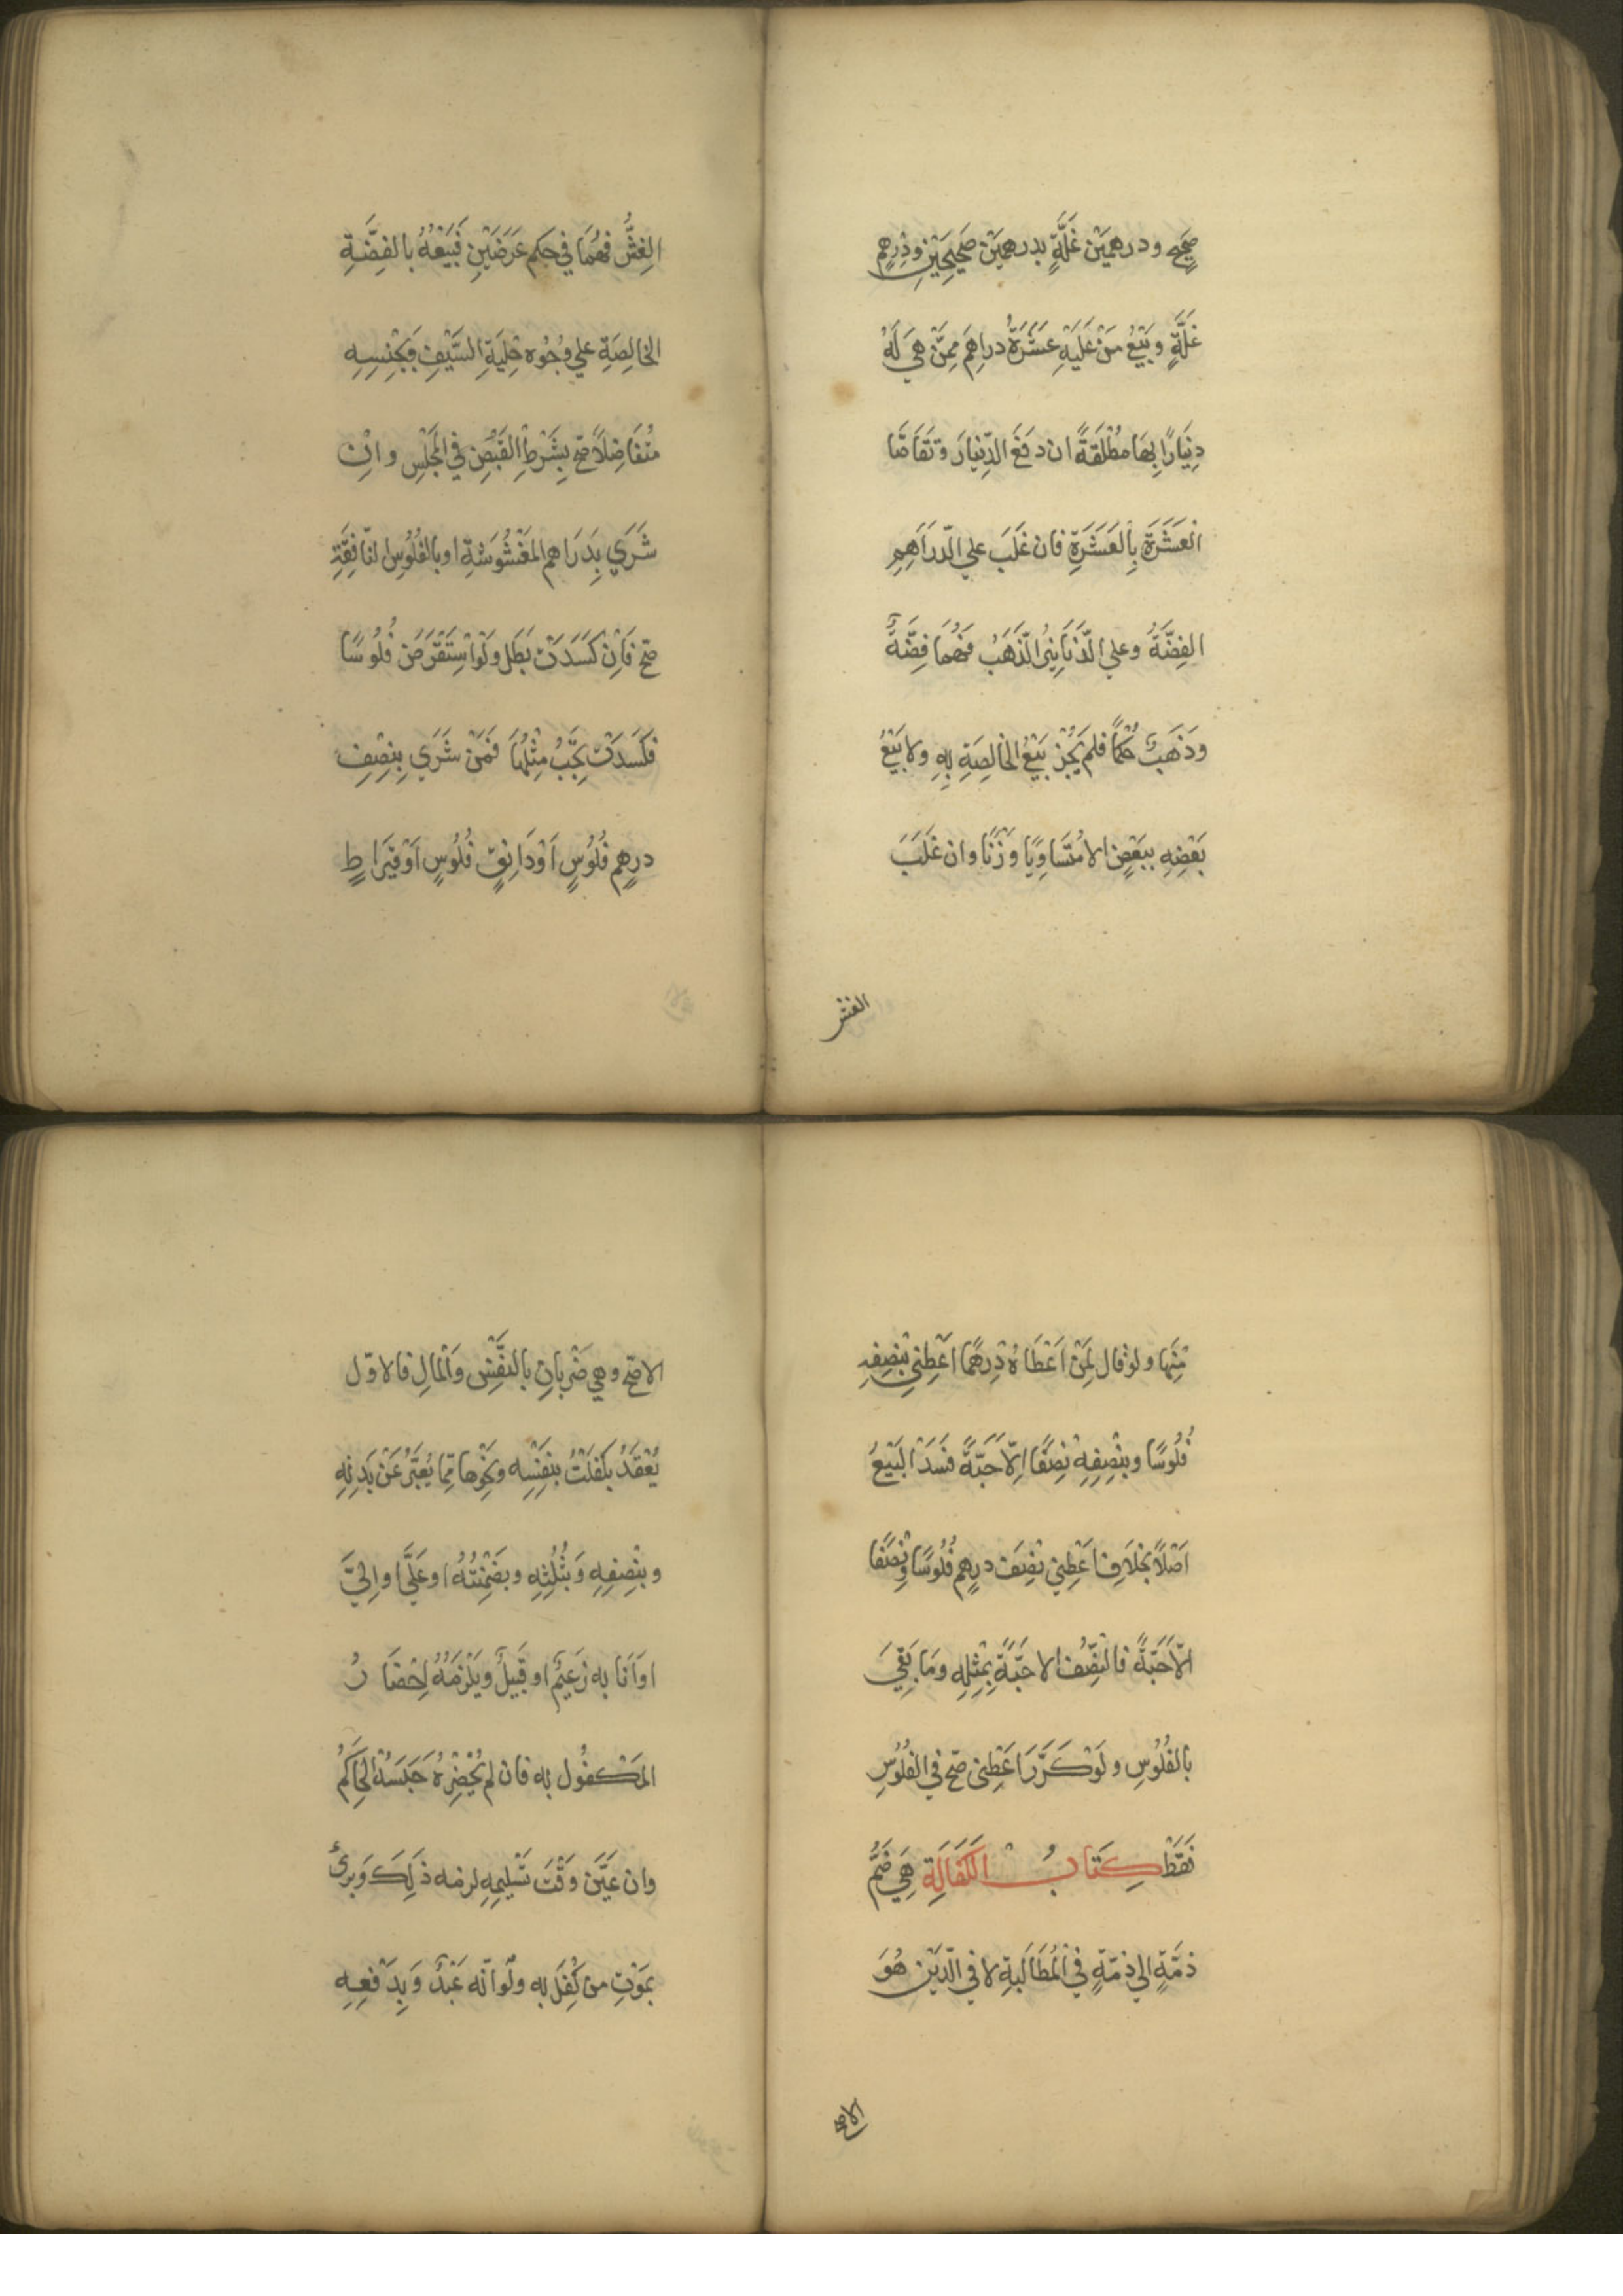 صَحِيحٍ ودرهمَيْن غَلَّةٍ بدرهمَيْن صَحِيحَيْنِ ودِرْهمٍ
غَلَّةٍ وبَيْعُ مَنْ عَلَيْهِ عَشَرَةُ دراهِمَ مِمَّنْ هِيَ لَهُ
دِيْنَارًا بِهَا مُطْلَقَةً ان دَفَعَ الدِّيْنَارَ وتَقَاصَّا
العَشَرَةَ بِالعَشَرَةِ فان غَلَبَ علي الدّرَاهِمِ
الفِضَّةُ وعلي الدَّنَانِيْرِ الذَّهَبُ فَهُمَا فِضَّةٌ
وذَهَبٌ حُكْمًا فلم يَجُزْ بَيْعُ الخَالِصَةِ بِهِ ولا بَيْعُ
بَعْضِهِ بِبَعْضٍ الا مُتَسَاوِيًا وَزْنًا وان غَلَبَ
الغش
الغِشُّ فهُمَا في حكم عَرَضَيْنِ فَبَيْعُهُ بالفِضَّةِ
الخَالِصَةِ علي وُجُوه حِلْيَةِ السَّيْفِ وَبِجِنْسِهِ
مُتَفَاضِلاً صَحّ بِشَرْطِ القَبْضِ في المَجْلِسِ وانْ
شَرَي بِدَرَاهم المَغْشُوشَةِ او بالفُلُوسِ النّافِقَةِ
صَحّ فَاِنْ كَسَدَتْ بَطَل ولَو اسْتَقْرَضَ فُلُوسًا
فَكَسَدَتْ يَجِبُ مِثْلُهَا فَمَنْ شَرَي بِنِصْفِ
درهمٍ فُلُوسٍ اَوْ دَانِقٍ فُلُوسٍ اَوْ قِيرَاطٍ
مِنْهَا ولو قال لِمَنْ اَعْطَاهُ دِرهَمًا اَعْطِني بِنِصْفِهِ
فُلُوسًا وبِنِصْفِهِ نِصْفًا اِلاّ حَبَّةً فَسَدَ البَيْعُ
اَصْلاً بخلاَفِ اَعْطِني نِصْفَ درهمٍ فُلُوسًا ونِصْفًا
الاّ حَبَّةً فالنِّصْفُ الا حَبَّةً بِمِثْلِهِ ومَا بَقِيَ
بالفُلُوسِ ولَوْ كَرَّرَ اَعْطِني صَحّ في الفُلُوسِ
فَقَطْ كِتَابُ الكَفَالَةِ هِيَ ضَمُّ
ذمَّةٍ الي ذمّةٍ في المُطَالَبةِ لا في الدّيْنِ هُوَ
الاصح
الاصَحّ وهي ضَرْبانِ بالنَّفْسِ وَالمَالِ فالاوّل
يُعْقَدُ بكفَلْتُ بنَفْسِه ونَحْوِها مِمّا يُعَبَّرُ عَنْ بَدنِهِ
وبنِصْفِهِ وَبثُلُثِهِ وبضَمِنْتُهُ او عَلَيَّ او اِلَيَّ
اوَ اَنا به زَعيْمٌ او قَبِيلٌ ويَلْزَمُهُ اِحْضَارُ
المَكفُول به فان لم يُحْضِرْهُ حَبَسَهُ الحَاكِمُ
وان عَيَّنَ وَقْتَ تَسْلِيمِهِ لزمه ذَلِكَ وَبرئَ
بمَوْتِ من كُفِلَ به ولَو انّه عَبْدٌ وَبِدَفعِهِ